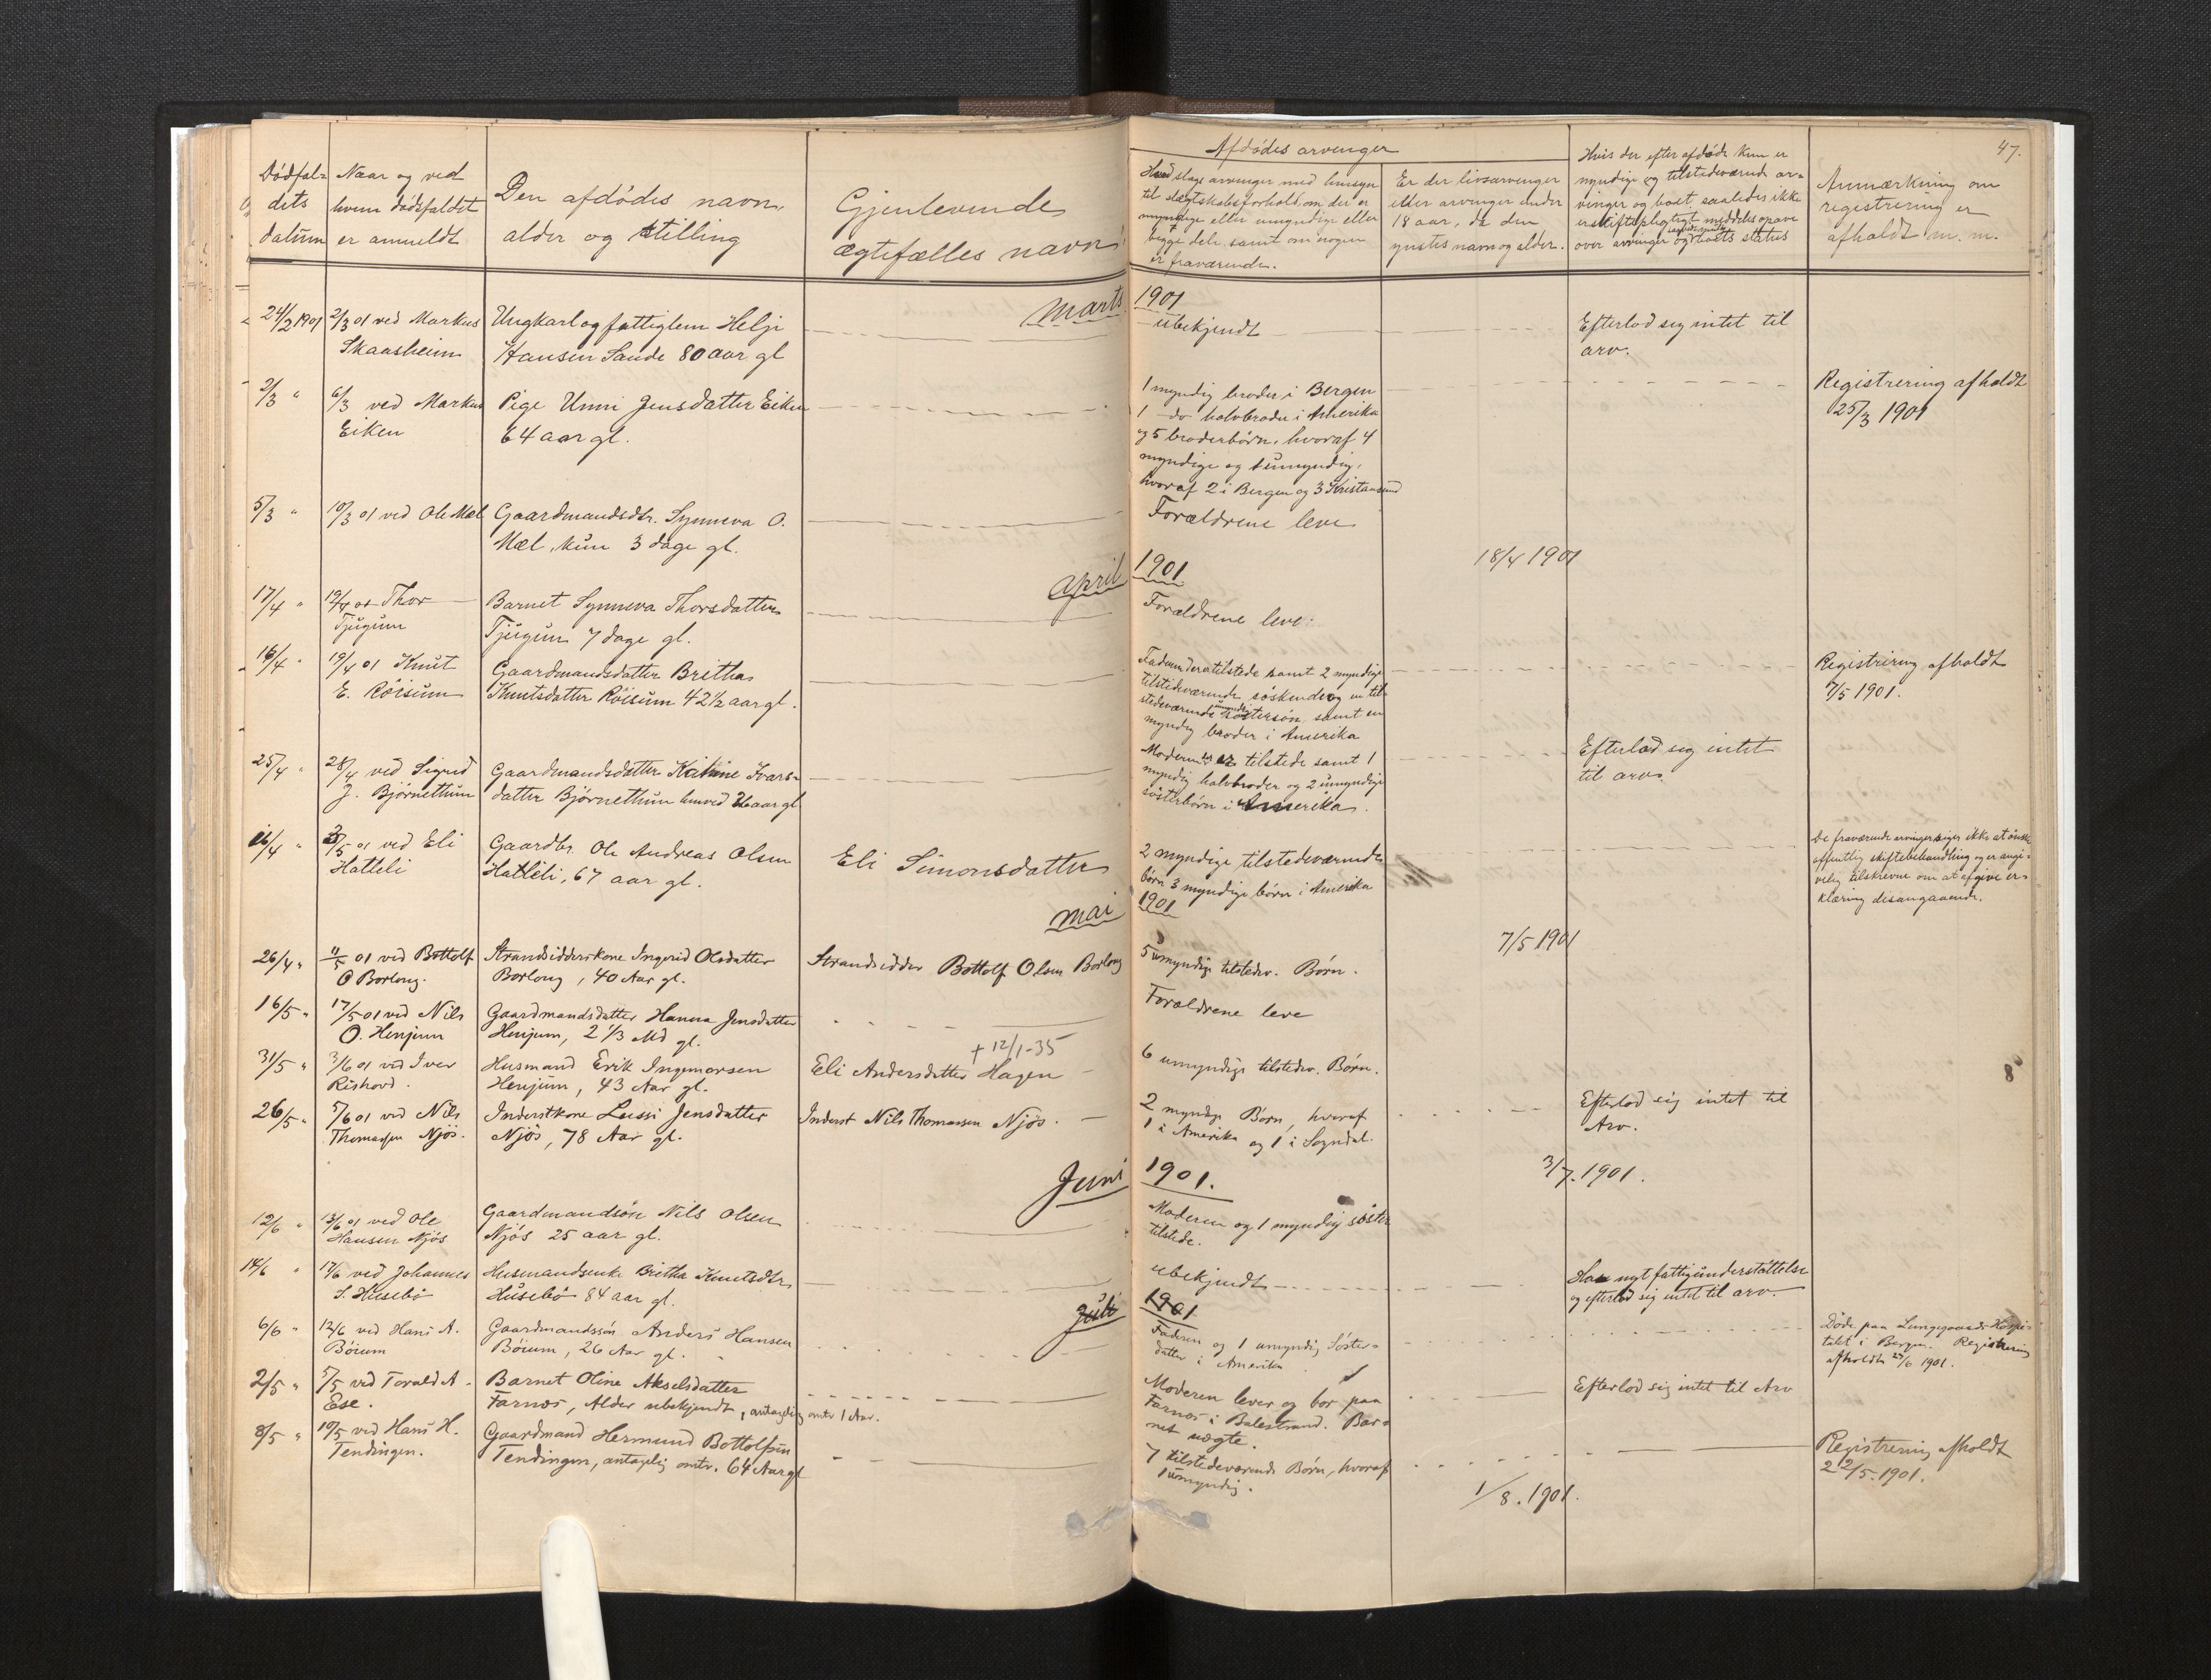 47.
Dödfal-
dets
datum
Naar og ved
hvem dödsfaldet
er anmeldt
Den afdödes navn,
alder og stilling
Gjenlevende
ægtefælles navn
Afdödes arvinger
Hvad slags arvinger med hensyn
til slægtskabsforhold, om der er
myndige eller umyndige eller
begge dele, samt om nogen
er fraværende.
Er der livsarvinger
eller arvinger under
18 aar, da den
yngstes navn og alder.
Hvis der efter afdöde kun er
myndige og tilstedeværende ar-
vinger og boet saaledes ikke
er skiftepligtigt meddeles opgave
over arvinger og boets status
Anmærkning om
registrering er
afholdt m. m.
Marts 1901
24/2 1901
2/3 01 ved Markus
Skaasheim
Ungkarl og fattiglem Helje
Hansen Sande 80 aar gl
ubekjendt
Efterlod sig intet til
arv.
2/3 "
6/3 ved Markus
Eiken
Pige Unni Jensdatter Eiken
64 aar gl.
1 myndig broder i Bergen
1 do halvbroder i Amerika
og 5 broderbörn, hvoraf 4
myndige og 1 umyndig,
hvoraf 2 i Bergen og 3 Kristiansund
Registrering afholdt
25/3 1901
5/3 "
10/3 01 ved Ole Mæl
Gaardmandsdtr. Synneva O.
Mæl, kun 3 dage gl.
Forældrene leve
18/4 1901
April 1901
17/4 "
19/4 01 Thor
Tjugum
Barnet Synneva Thorsdatter
Tjugum 7 dage gl.
Forældrene leve.
16/4 "
19/4 01 Knut
E. Röisum
Gaardmandsdatter Britha
Knutsdatter Röisum 42 1/2 aar gl.
Faderen er tilstede samt 2 myndige
tilstedeværende söskende og en til-
stedeværende umyndig söstersön samt en
myndig broder i Amerika
Registrering afholdt
7/5 1901.
25/4 "
28/4 ved Sigrid
J. Björnethun
Gaardmandsdatter Katrine Ivars-
datter Björnethun henved 26 aar gl
Moderen er tilstede samt 1
myndig halvbroder og 2 umyndige
sösterbörn i Amerika.
Efterlod sig intet
til arv.
16/4 "
3/5 01 ved Eli
Hatleli
Gaardbr. Ole Andreas Olsen
Hatleli, 67 aar gl.
Eli Simonsdatter
2 myndige tilstedeværende
börn 3 myndige börn i Amerika
De fraværende arvinger siges ikke at önske
offentlig skiftebehandling og er angi-
velig tilskrevne om at afgive er-
klæring desangaaende.
Mai 1901
7/5 1901
26/4 "
11/5 01 ved Bottolf
O Borlong.
Strandsidderskone Ingerid Olsdatter
Borlong, 40 Aar gl.
Strandsidder Bottolf Olsen Borlong
5 umyndige tilstedev. Börn.
16/5 "
17/5 01 ved Nils
O. Henjum
Gaardmandsdatter Hanna Jensdatter
Henjum, 2 1/3 Md gl.
Forældrene leve
31/5 "
3/6 01 ved Iver
Rishovd.
Husmand Erik Ingemorsen
Henjum, 43 Aar gl.
+ 12/1-35
Eli Andersdatter Hagen
6 umyndige tilstedev. Börn.
8
26/5 "
5/6 01 ved Nils
Thomassen Njös.
Inderstkone Lussi Jensdatter
Njös, 78 Aar gl.
Inderst Nils Thomassen Njös.
2 myndige Börn, hvoraf
1 i Amerika og 1 i Sogndal.
Efterlod sig intet til
Arv.
Juni 1901.
3/7. 1901.
12/6 "
13/6 01 ved Ole
Hansen Njös
Gaardmandsön Nils Olsen
Njös 25 aar gl.
Moderen og 1 myndig söster
tilstede.
14/6 "
17/6 ved Johannes
S. Husebö
Husmandsenke Britha Knutsdtr.
Husebö 84 aar gl.
ubekjendt
Har nyt fattigunderstöttelse
og efterlod sig intet til arv.
Juli 1901
6/6 "
12/6 ved Hans A.
Böium
Gaardmandssön Anders Hansen
Böium, 26 Aar gl.
Faderen og 1 umyndig Söster-
datter i Amerika
Döde paa Lungegaards Hospi-
talet i Bergen. Registrering
afholdt 27/6 1901.
2/5 "
5/5 ved Torald A.
Ese.
Barnet Oline Akselsdatter
Farnes, Alder ubekjendt, antagelig omtr 1 Aar.
Moderen lever og bor paa
Farnes i Balestrand. Bar-
net uægte.
Efterlod sig intet til Arv
8/5 "
10/5 ved Hans H.
Tendingen.
Gaardmand Hermund Bottolfsen
Tendingen, antagelig omtr. 64 Aar gl
7 tilstedeværende Börn, hvoraf
1 umyndig.
Registrering afholdt
22/5. 1901.
1/8. 1901.